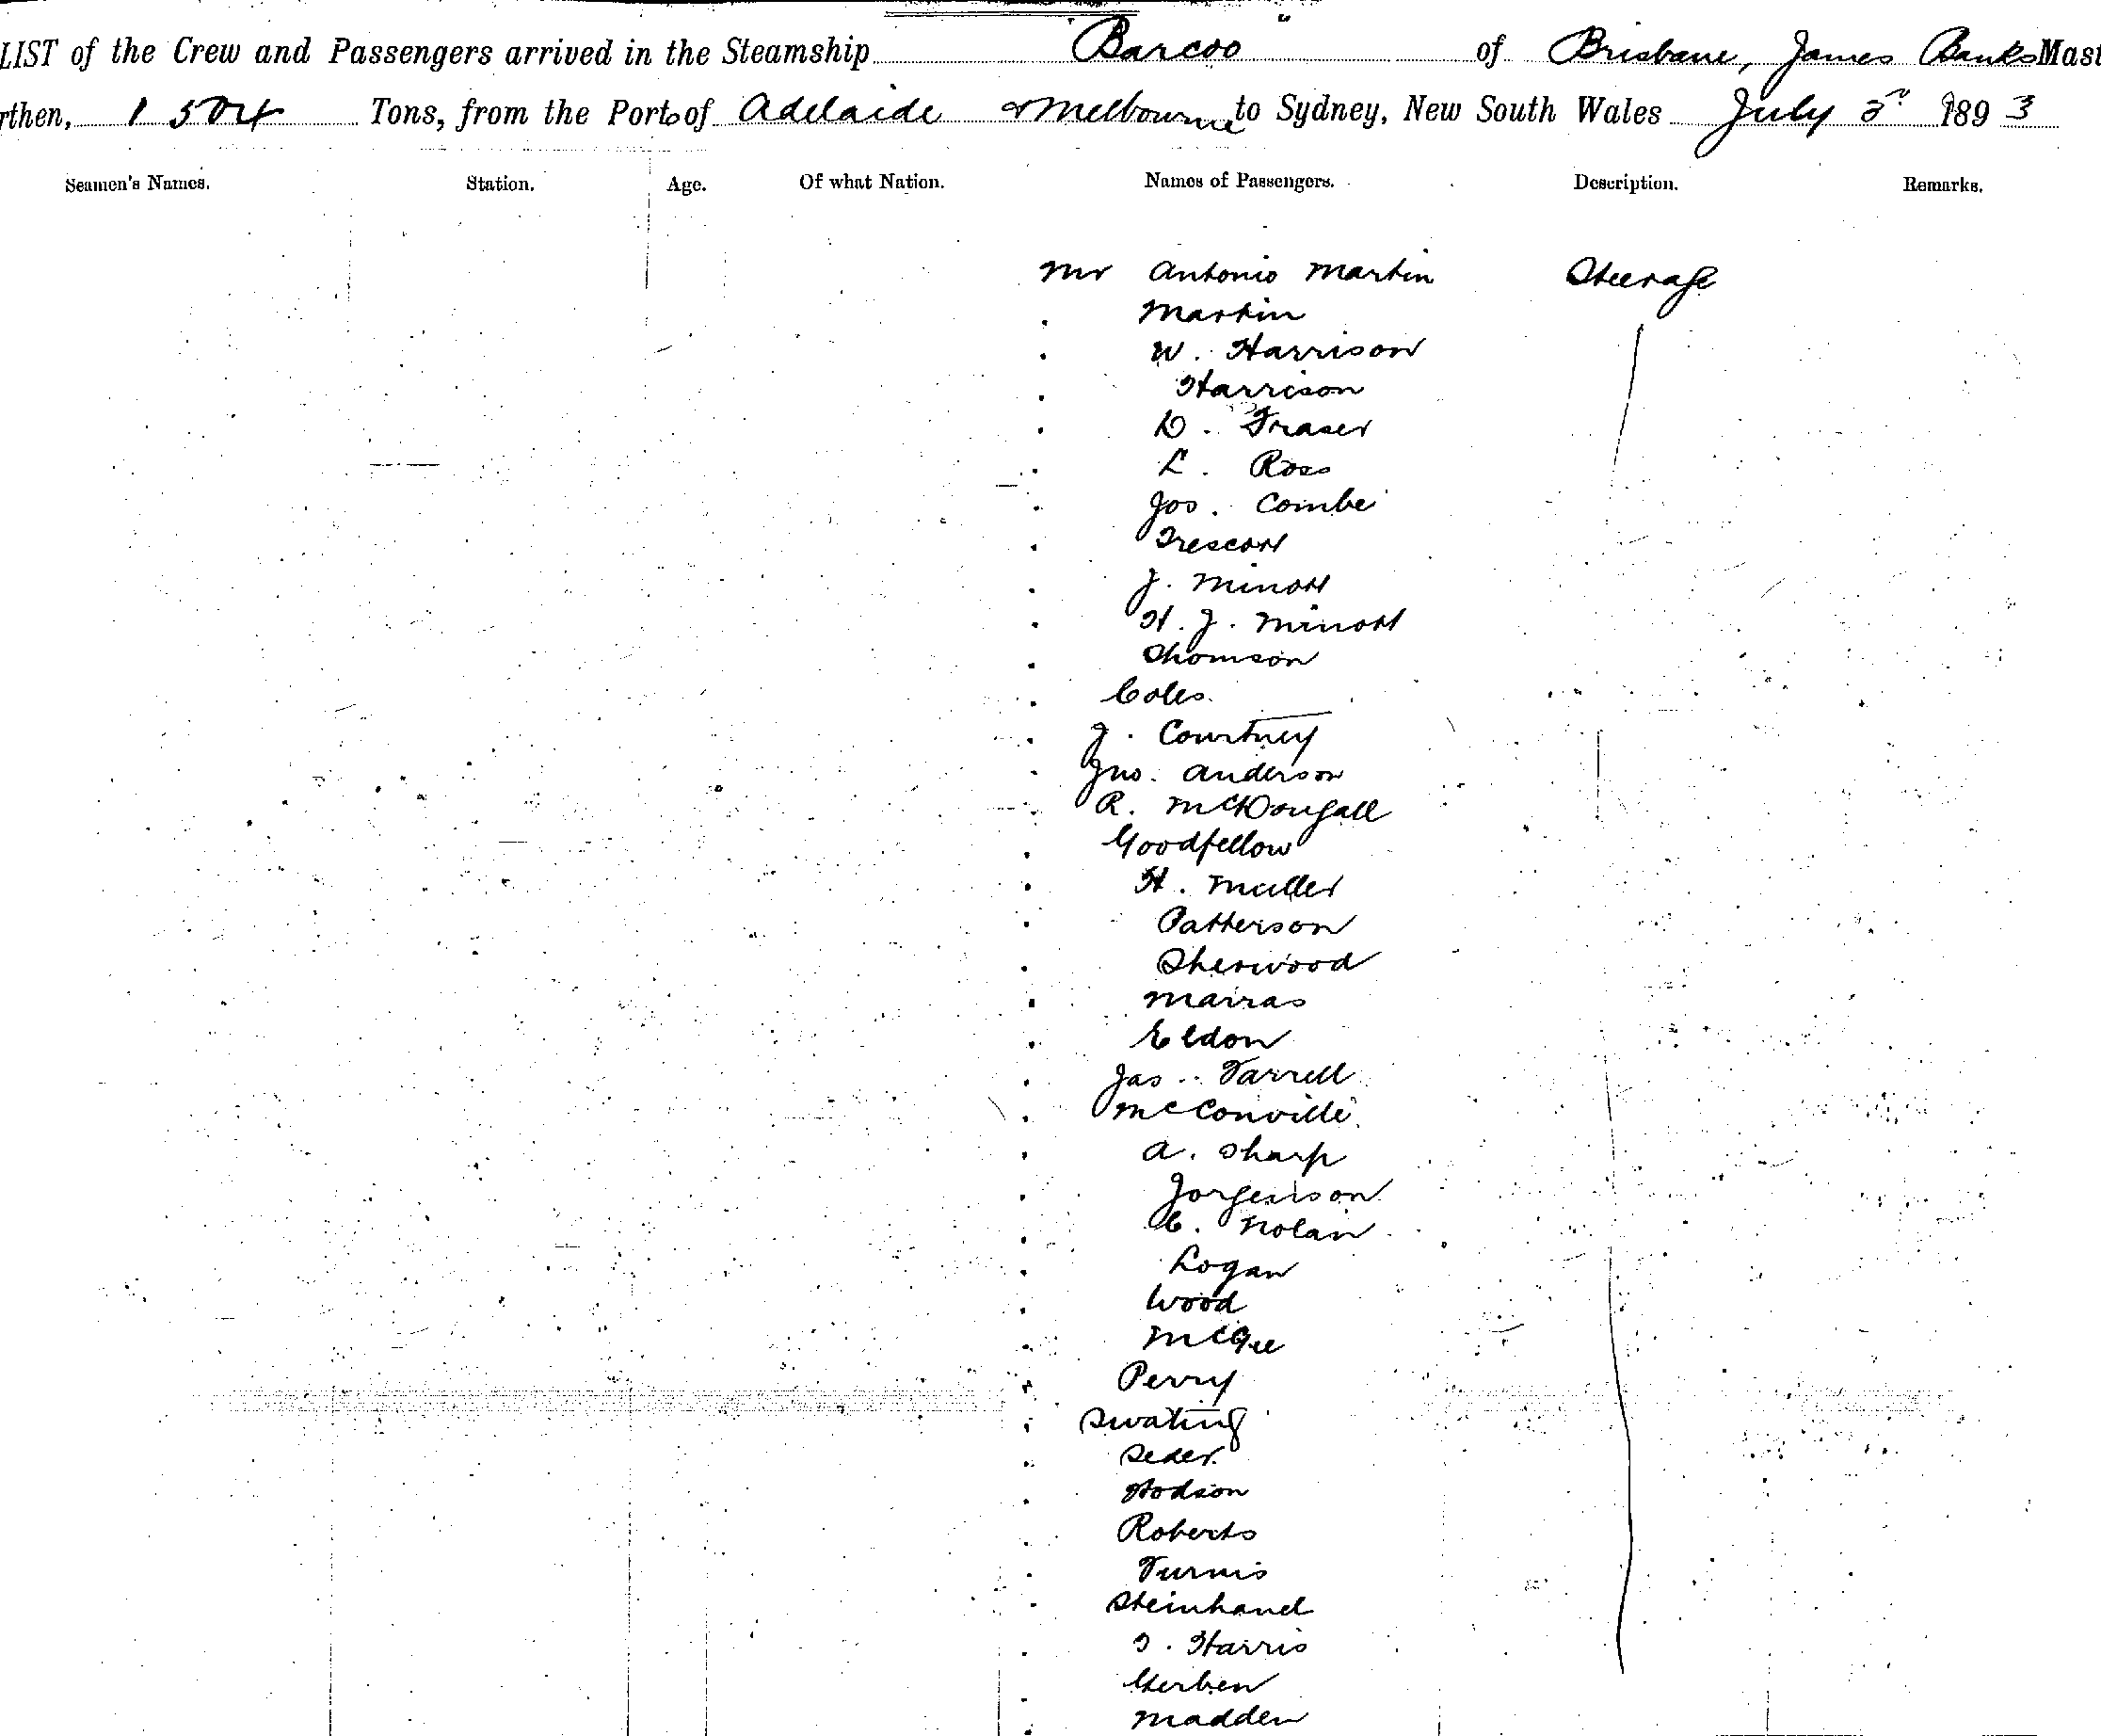 LIST of the Crew and Passengers arrived in the Steamship "Barcoo" of Brisbane, James Banks Mast
rthen, 1504 Tons, from the Port of Adelaide & Melbourne to Sydney, New South Wales July 3rd 1893
Seamen's Names. Station. Age. Of what Nation. Names of Passengers. Description. Remarks.
Mr Antonio Martin Steerage
. Martin
. W. Harrison
. Harrison
. D. Fraser
. L. Ross
. Jos. Combe
. Trescott
. J. Minott
. H. J. Minott
. Thomson
. Coles
. J. Courtney
. Jno. Anderson
. R. McDougall
. Goodfellow
. H. Muller
. Patterson
. Sherwood
. Mairas
. Eldon
. Jas. Farrell
. McConville
. A. Sharp
. Jorgenson
. C. Nolan
. Logan
. Wood
. McGee
. Perry
. Swating
. Seder
. Hodson
. Roberts
. Steinhand
. T. Harris
. Gerben
. Madden